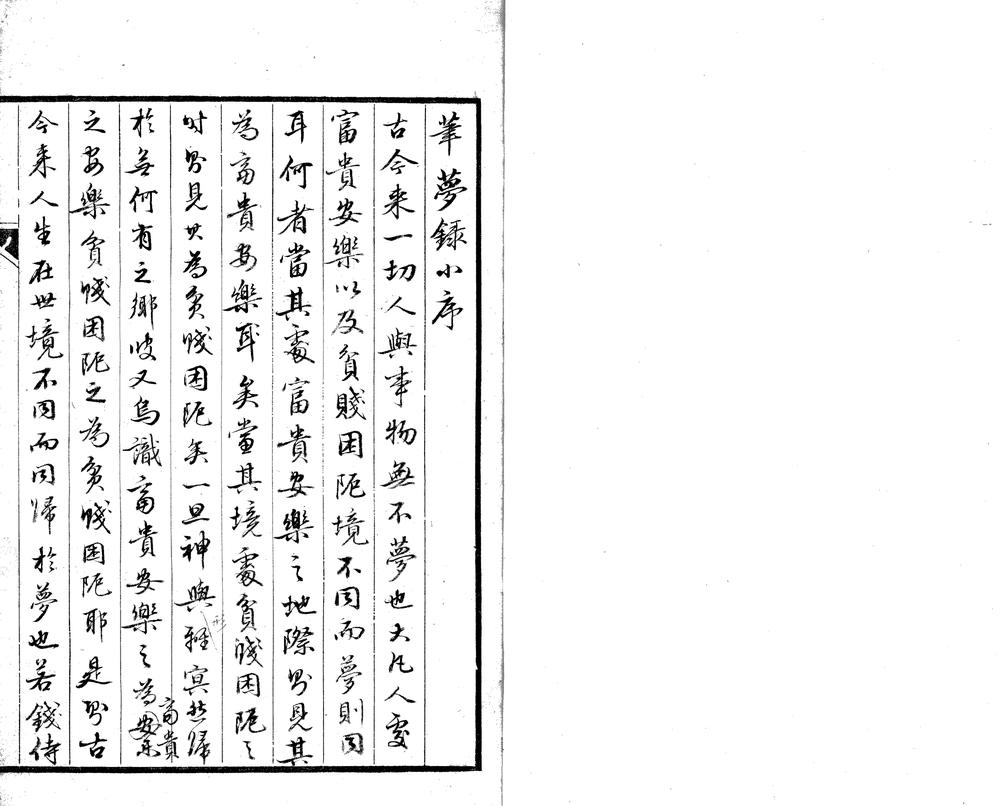 筆夢錄小序
古今来一切人與事物無不夢也大凡人處
富貴安樂以及貧賤困阨境不同而夢則同
耳何者當其處富貴安樂之地際則見其
為富貴安樂耳矣當其境處貧賤困阨之
时則見其為貧賤困阨矣一旦神與形冥然歸
於無何有之鄉時又烏識富貴安樂之為富貴
之安樂貧賤困阨之為貧賤困阨耶是則古
今来人生在世境不同而同歸於夢也若錢侍